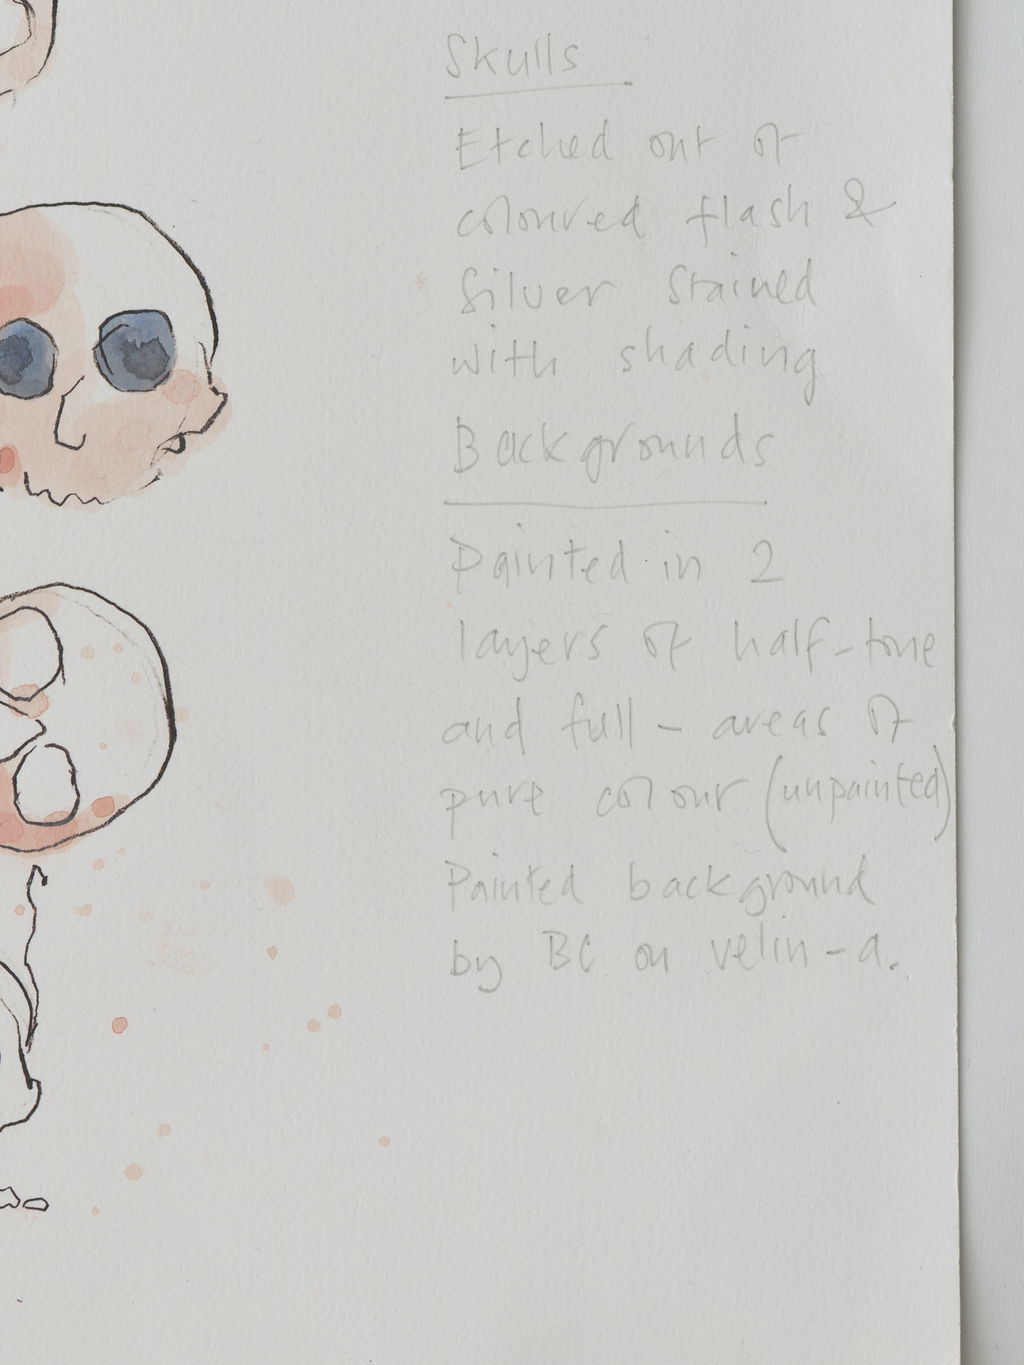 Skulls
Etched out of
coloured flash &
Silver stained
with shading
Backgrounds
Painted in 2
layers of half-tone
and full - areas of
pure colour (unpainted)
Painted background
by BC on velin-a.